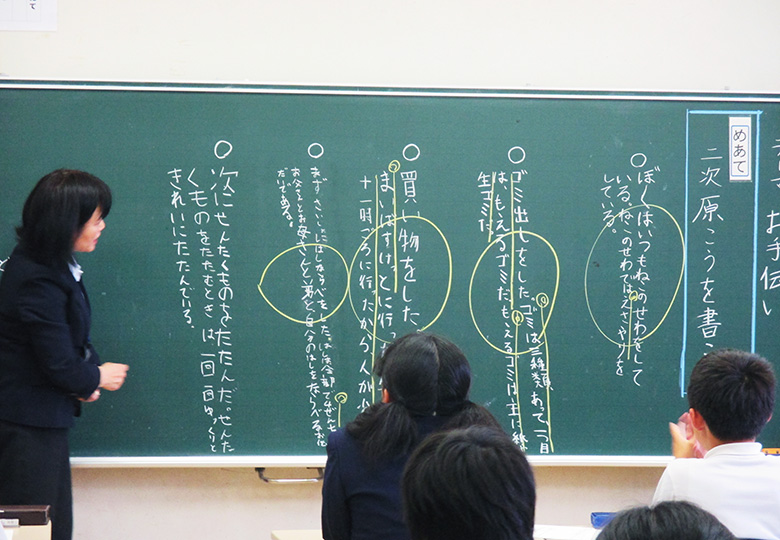 お手伝い
めあて
二次原こうを書
○ぼくはいつもねこのせわをして
いる。ねこのせわではえさやりを
している。
○ゴミ出しをした。ゴミは三種類あって一つ目
は、もえるゴミだ。もえるゴミは主に
生ゴミだ
○買い物をした
まいばすけっとに行っ
十一時ごろに行ったから人が
○まず、さいしょにはしならべをした。はしは全部で4ぜん
お父さんとお母さんと弟と自分のはしをならべるお手
だいである。
○次にせんたくものをたたんだ。せんた
くものをたたむときは一回一回ゆっくりと
きれいにたたんでいる。